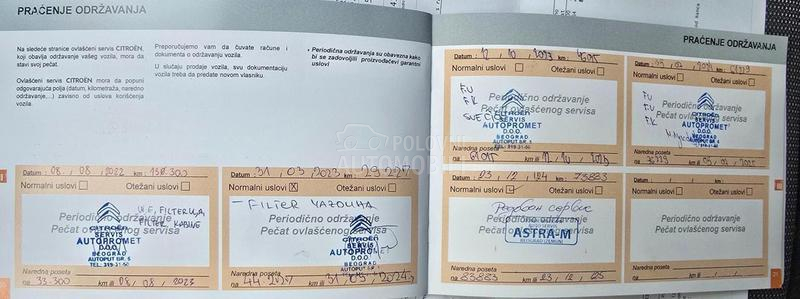 PRAĆENJE ODRŽAVANJA
Na sledeće stranice ovlašćeni servis CITROËN, koji obavlja održavanje vašeg vozila, mora da stavi svoj pečat.
Ovlašćeni servis CITROËN mora da popuni odgovarajuća polja (datum, kilometraža, naredno održavanje,...) zavisno od uslova korišćenja vozila.
Preporučujemo vam da čuvate račune i dokumenta o održavanju vozila.
U slučaju prodaje vozila, svu dokumentaciju vozila treba da predate novom vlasniku.
• Periodična održavanja su obavezna kako bi se zadovoljili proizvođačevi garantni uslovi
Datum : 08.08/2022 km :
Normalni uslovi Otežani uslovi
Periodično održavanje
Pečat ovlašćenog servisa
CITROËN
SERVIS
AUTOPROMET
D.O.O.
BEOGRAD
AUTOPUT BR. 5
Naredna poseta
na 33.300 km ili 08/08/2023
Datum : 31/03/2023 km :
Normalni uslovi X Otežani uslovi
- FILTER VAZDUHA
Periodično održavanje
Pečat ovlašćenog servisa
CITROËN
SERVIS
AUTOPROMET
D.O.O.
BEOGRAD
Naredna poseta
na km ili 31/03/2024
PRAĆENJE ODRŽAVANJA
Datum : 12/10/2023 km :
Normalni uslovi Otežani uslovi
Periodično održavanje
Pečat ovlašćenog servisa
CITROËN
SERVIS
AUTOPROMET
D.O.O.
BEOGRAD
AUTOPUT BR. 5
Naredna poseta
na km ili
Datum : km :
Normalni uslovi Otežani uslovi
Periodično održavanje
Pečat ovlašćenog servisa
CITROËN
SERVIS
AUTOPROMET
D.O.O.
BEOGRAD
AUTOPUT BR. 5
Naredna poseta
na km ili
Datum : 23/12/24 km : 73883
Normalni uslovi Otežani uslovi
Редован сервис
Pečat ovlašćenog servisa
AUTO SERVIS
ASTRA-M
BEOGRAD (ZEMUN)
Naredna poseta
na 83883 km ili 23/12/25
Datum : / / km :
Normalni uslovi Otežani uslovi
Periodično održavanje
Pečat ovlašćenog servisa
Naredna poseta
na km ili / /
POLOVNI AUTOMOBILI